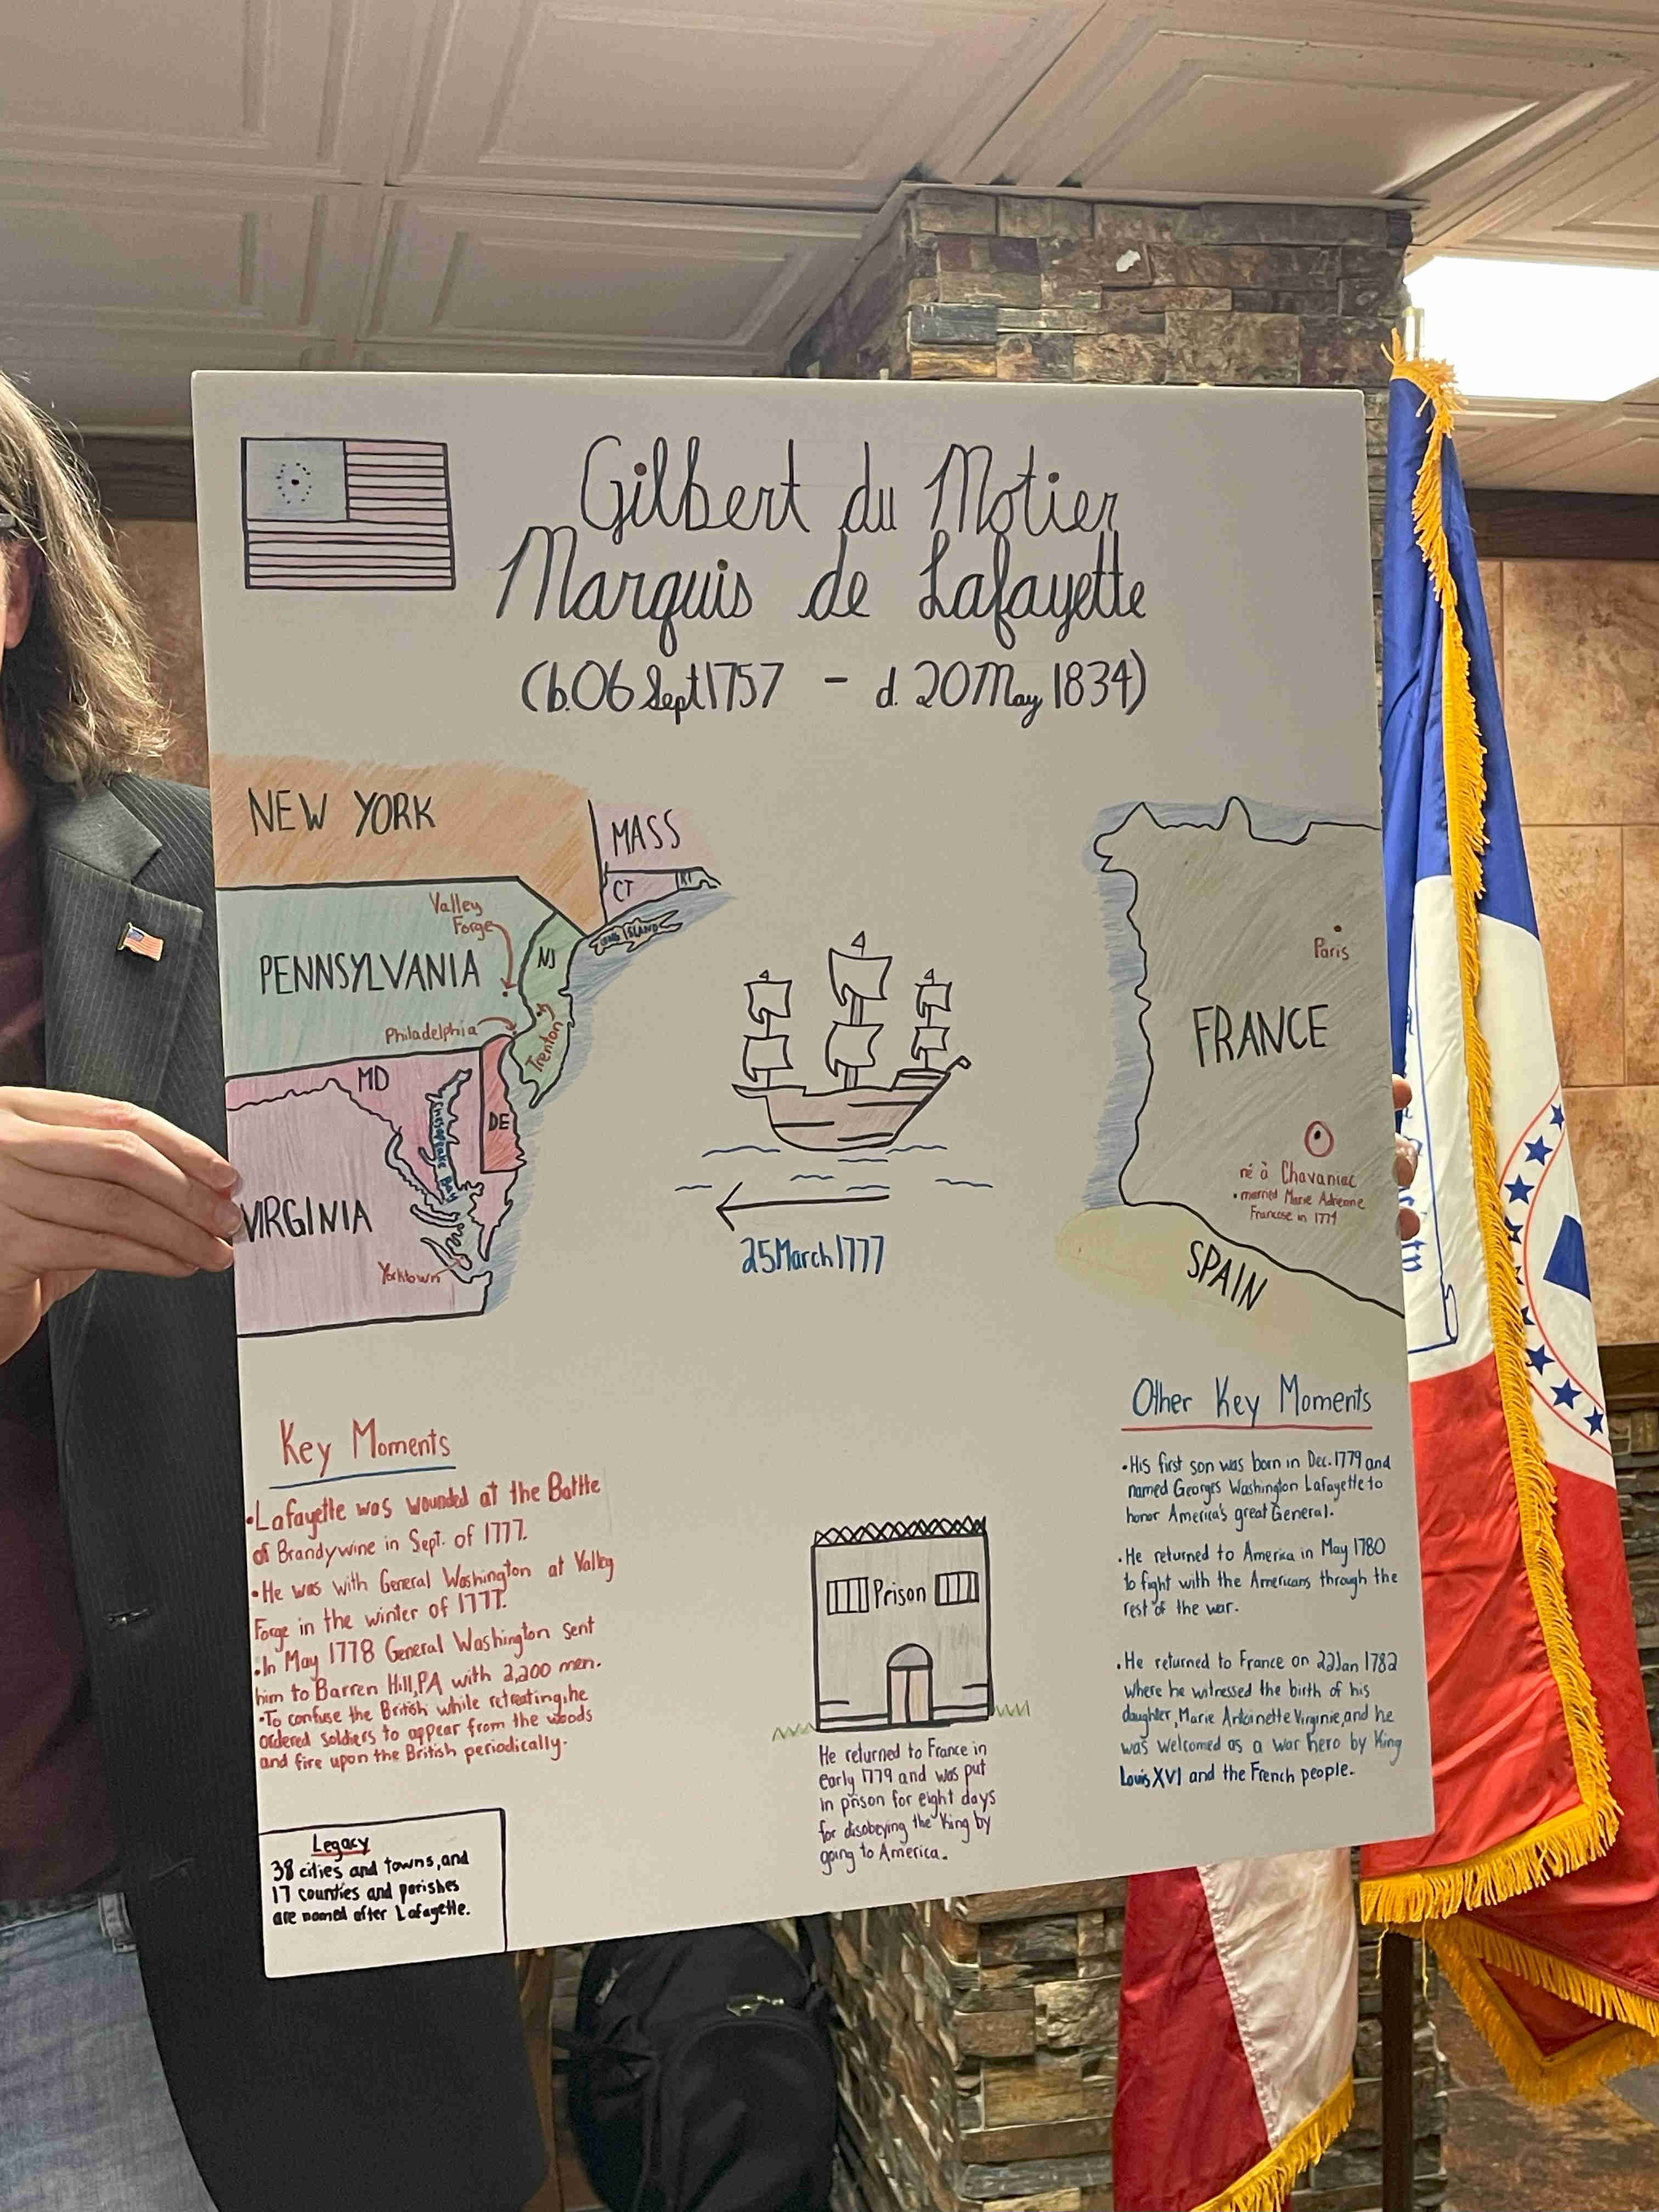 Gilbert du Motier
Marquis de Lafayette
(b. 06 Sept 1757 - d. 20 May 1834)
NEW YORK
MASS
CT
RI
LONG ISLAND
Valley
Forge
PENNSYLVANIA
NJ
Philadelphia
Trenton
MD
DE
Chesapeake Bay
VIRGINIA
Yorktown
25 March 1777
Paris
FRANCE
né à Chavaniac
• married Marie Adrienne
Francose in 1774
SPAIN
Key Moments
• Lafayette was wounded at the Battle
of Brandywine in Sept. of 1777.
• He was with General Washington at Valley
Forge in the winter of 1777.
• In May 1778 General Washington sent
him to Barren Hill, PA with 2,200 men.
• To confuse the British while retreating, he
ordered soldiers to appear from the woods
and fire upon the British periodically.
Legacy
38 cities and towns, and
17 counties and parishes
are named after Lafayette.
Prison
He returned to France in
early 1779 and was put
in prison for eight days
for disobeying the King by
going to America.
Other Key Moments
• His first son was born in Dec. 1779 and
named Georges Washington Lafayette to
honor America's great General.
• He returned to America in May 1780
to fight with the Americans through the
rest of the war.
• He returned to France on 22 Jan 1782
where he witnessed the birth of his
daughter, Marie Antoinette Virginie, and he
was welcomed as a war hero by King
Louis XVI and the French people.